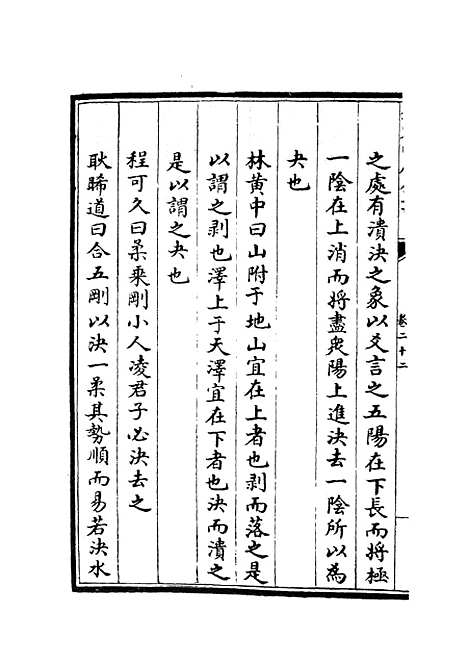 之處有潰決之象以爻言之五陽在下長而將極
一陰在上消而將盡衆陽上進決去一陰所以為
夬也
林黃中曰山附于地山宜在上者也剥而落之是
以謂之剥也澤上于天澤宜在下者也決而潰之
是以謂之夬也
程可久曰柔乘剛小人凌君子必決去之
耿晞道曰合五剛以決一柔其勢順而易若決水
卷二十二